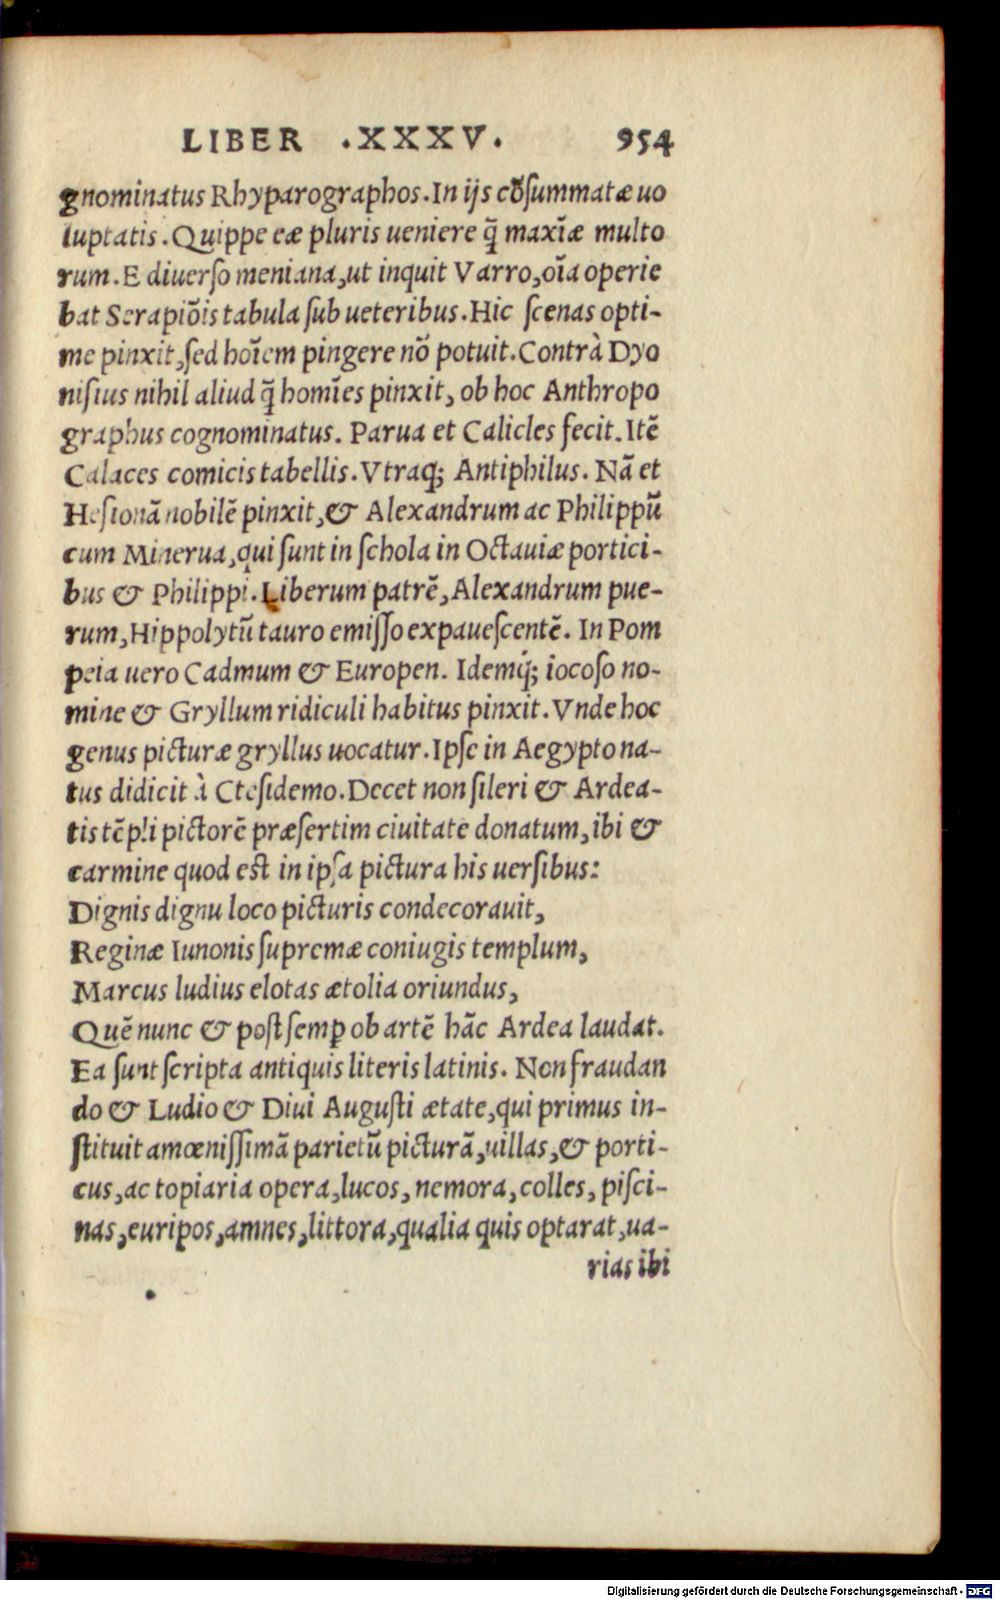 LIBER .XXXV. 954
gnominatus Rhyparographos. In ijs cõsummatæ uo
luptatis. Quippe eæ pluris ueniere q̃ maxīæ multo
rum. E diuerſo meniana, ut inquit Varro, oīa operie
bat Serapiõis tabula ſub ueteribus. Hic ſcenas opti-
me pinxit, ſed hoīem pingere nõ potuit. Contrà Dyo
niſius nihil aliud q̃ homīes pinxit, ob hoc Anthropo
graphus cognominatus. Parua et Calicles fecit. Itẽ
Calaces comicis tabellis. Vtraq; Antiphilus. Nã et
Heſionã nobilẽ pinxit, & Alexandrum ac Philippũ
cum Minerua, qui ſunt in ſchola in Octauiæ portici-
bus & Philippi. Liberum patrẽ, Alexandrum pue-
rum, Hippolytũ tauro emiſſo expaueſcentẽ. In Pom
peia uero Cadmum & Europen. Idemq́; iocoſo no-
mine & Gryllum ridiculi habitus pinxit. Vnde hoc
genus picturæ gryllus uocatur. Ipſe in Aegypto na-
tus didicit à Cteſidemo. Decet non ſileri & Ardea-
tis tẽpli pictorẽ præſertim ciuitate donatum, ibi &
carmine quod eſt in ipſa pictura his uerſibus:
Dignis dignu loco picturis condecorauit,
Reginæ Iunonis ſupremæ coniugis templum,
Marcus ludius elotas ætolia oriundus,
Quẽ nunc & poſt ſemp̱ ob artẽ hãc Ardea laudat.
Ea ſunt ſcripta antiquis literis latinis. Non fraudan
do & Ludio & Diui Auguſti ætate, qui primus in-
ſtituit amœniſſimã parietũ picturã, uillas, & porti-
cus, ac topiaria opera, lucos, nemora, colles, piſci-
nas, euripos, amnes, littora, qualia quis optarat, ua-
rias ibi
Digitalisierung gefördert durch die Deutsche Forschungsgemeinschaft - DFG